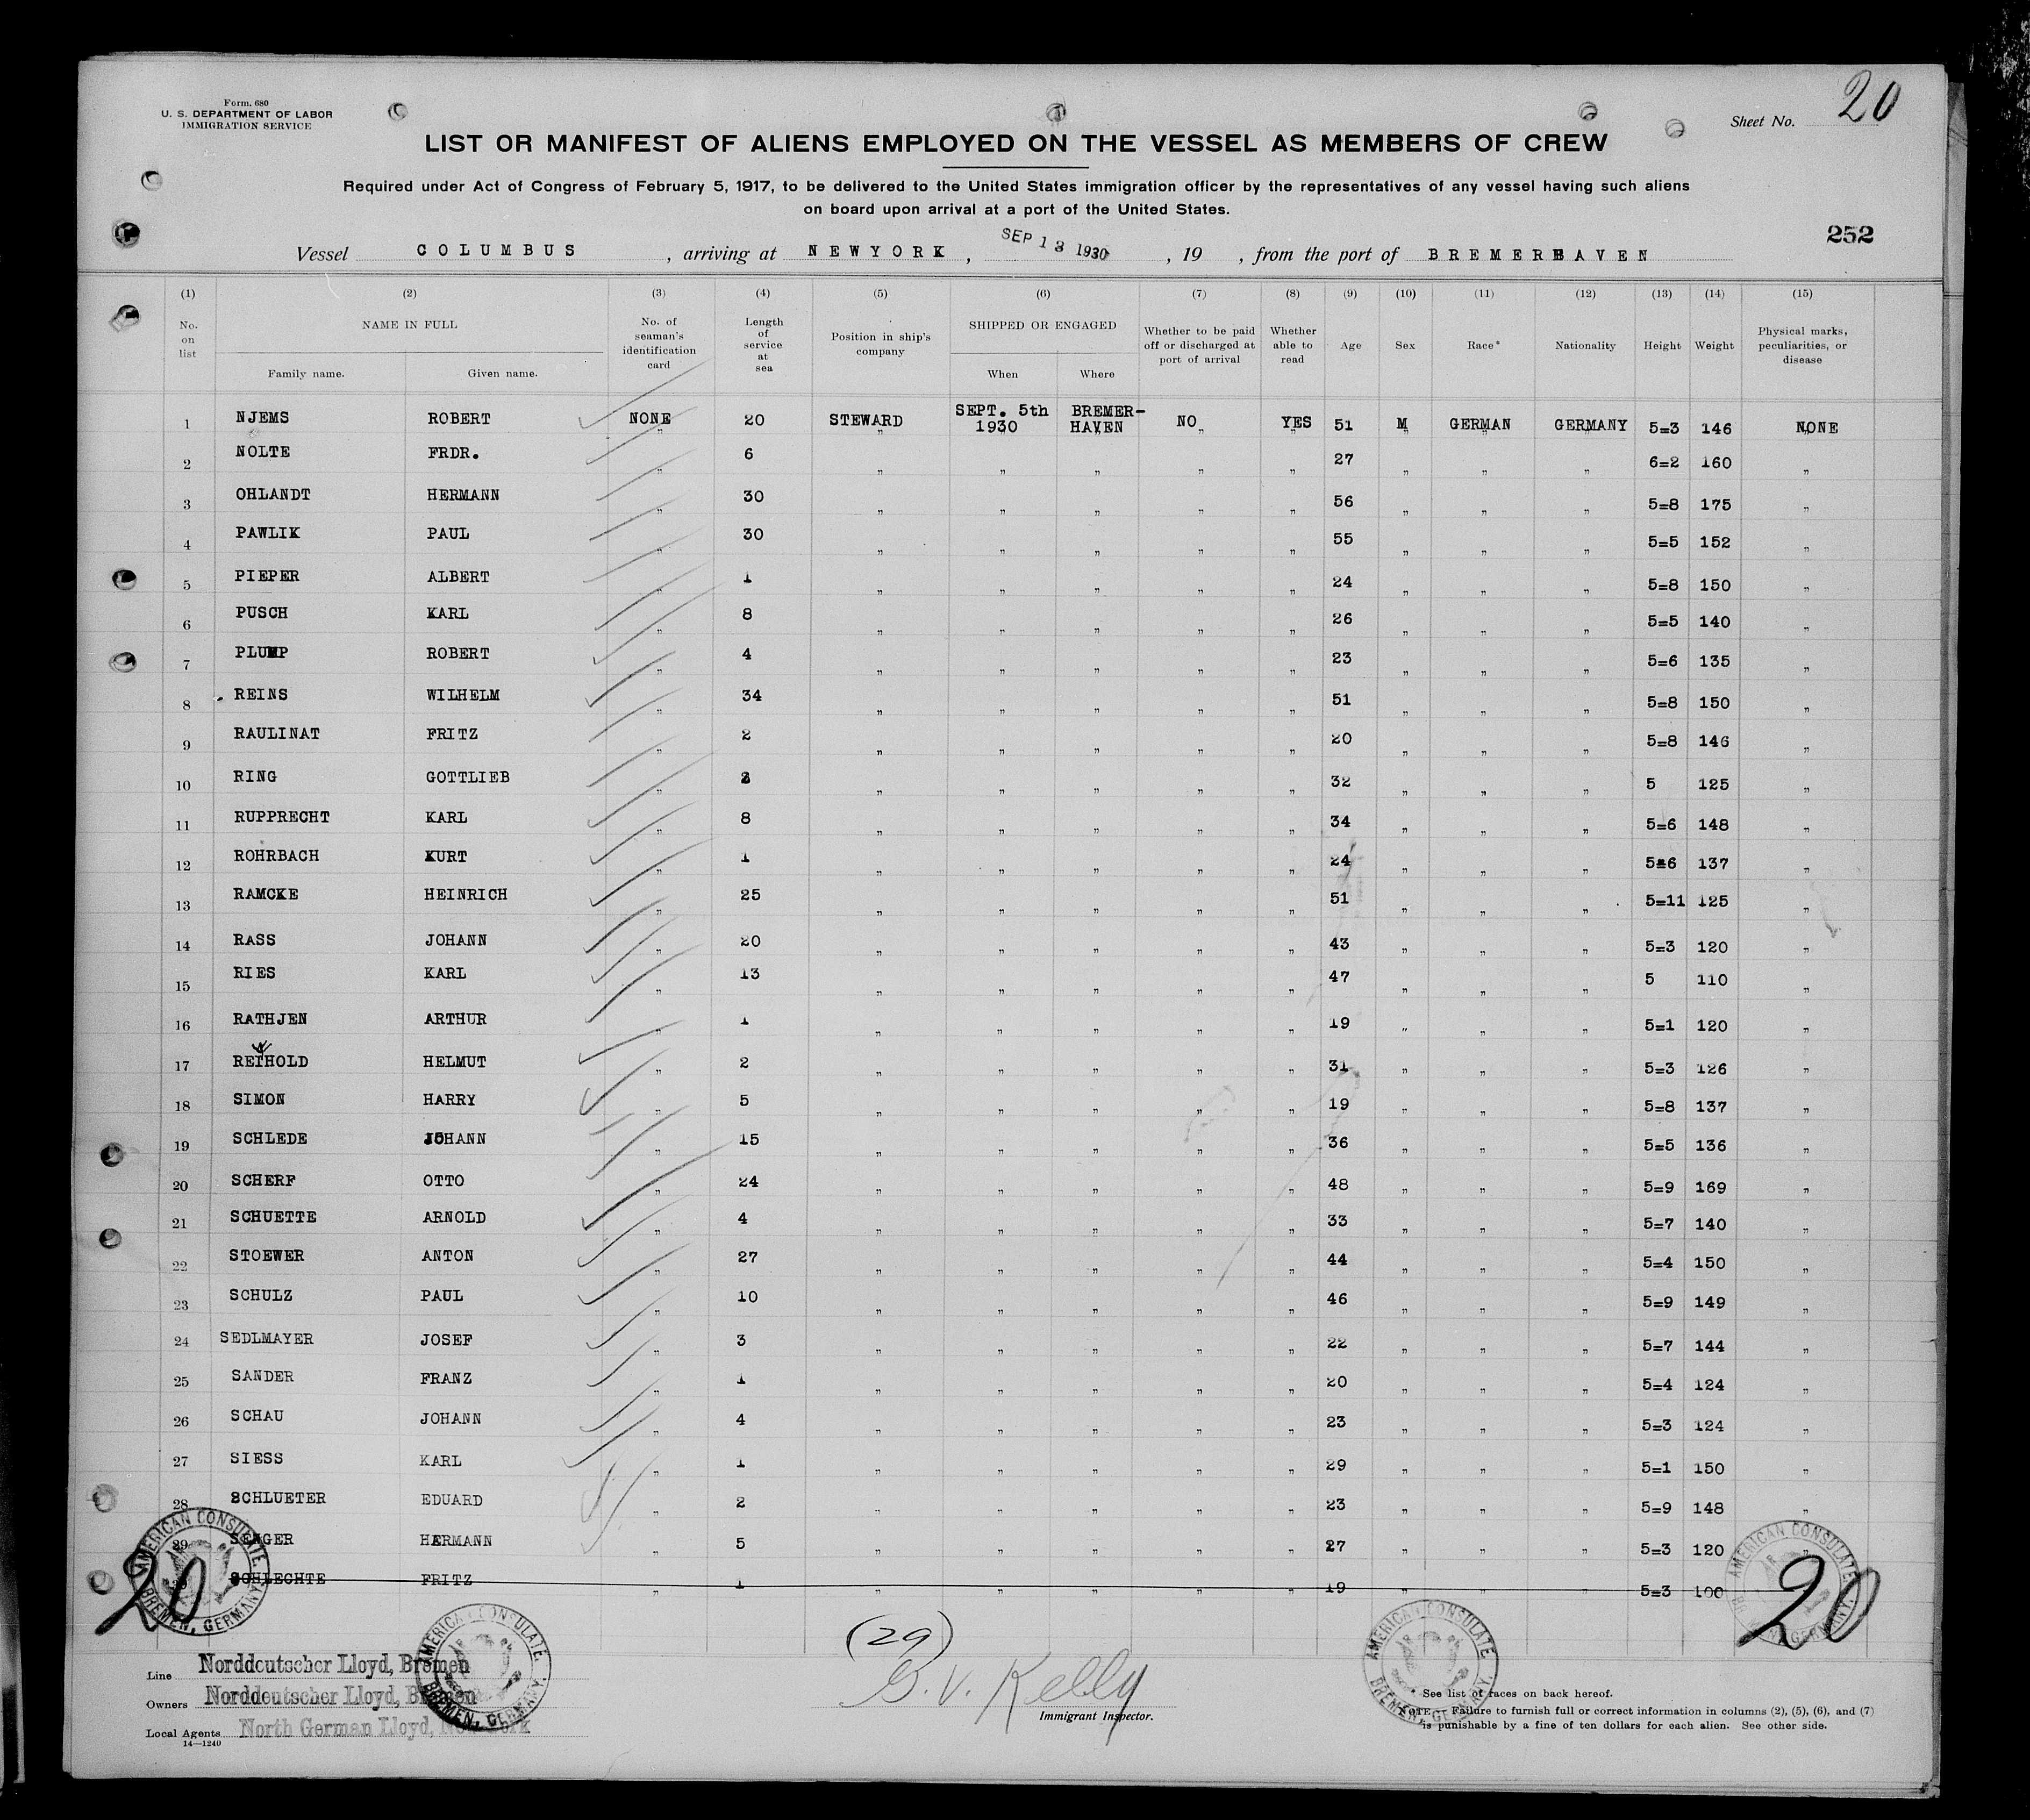 Form. 680
U. S. DEPARTMENT OF LABOR
IMMIGRATION SERVICE
Sheet No. 20
LIST OR MANIFEST OF ALIENS EMPLOYED ON THE VESSEL AS MEMBERS OF CREW
Required under Act of Congress of February 5, 1917, to be delivered to the United States immigration officer by the representatives of any vessel having such aliens
on board upon arrival at a port of the United States.
252
Vessel COLUMBUS , arriving at NEWYORK , SEP 13 1930 , 19 , from the port of BREMERHAVEN
(1) (2) (3) (4) (5) (6) (7) (8) (9) (10) (11) (12) (13) (14) (15)
No. on list NAME IN FULL Family name. Given name. No. of seaman's identification card Length of service at sea Position in ship's company SHIPPED OR ENGAGED When Where Whether to be paid off or discharged at port of arrival Whether able to read Age Sex Race* Nationality Height Weight Physical marks, peculiarities, or disease
1 NJEMS ROBERT NONE 20 STEWARD SEPT. 5th 1930 BREMER-HAVEN NO YES 51 M GERMAN GERMANY 5=3 146 NONE
2 NOLTE FRDR. " 6 " " " " " 27 " " " 6=2 160 "
3 OHLANDT HERMANN " 30 " " " " " 56 " " " 5=8 175 "
4 PAWLIK PAUL " 30 " " " " " 55 " " " 5=5 152 "
5 PIEPER ALBERT " 1 " " " " " 24 " " " 5=8 150 "
6 PUSCH KARL " 8 " " " " " 26 " " " 5=5 140 "
7 PLUMP ROBERT " 4 " " " " " 23 " " " 5=6 135 "
8 REINS WILHELM " 34 " " " " " 51 " " " 5=8 150 "
9 RAULINAT FRITZ " 2 " " " " " 20 " " " 5=8 146 "
10 RING GOTTLIEB " " " " " " 32 " " " 5 125 "
11 RUPPRECHT KARL " 8 " " " " " 34 " " " 5=6 148 "
12 ROHRBACH KURT " 1 " " " " " 24 " " " 5=6 137 "
13 RAMCKE HEINRICH " 25 " " " " " 51 " " " 5=11 125 "
14 RASS JOHANN " 20 " " " " " 43 " " " 5=3 120 "
15 RIES KARL " 13 " " " " " 47 " " " 5 110 "
16 RATHJEN ARTHUR " 1 " " " " " 19 " " " 5=1 120 "
17 REIHOLD HELMUT " 2 " " " " " 31 " " " 5=3 126 "
18 SIMON HARRY " 5 " " " " " 19 " " " 5=8 137 "
19 SCHLEDE JOHANN " 15 " " " " " 36 " " " 5=5 136 "
20 SCHERF OTTO " 24 " " " " " 48 " " " 5=9 169 "
21 SCHUETTE ARNOLD " 4 " " " " " 33 " " " 5=7 140 "
22 STOEWER ANTON " 27 " " " " " 44 " " " 5=4 150 "
23 SCHULZ PAUL " 10 " " " " " 46 " " " 5=9 149 "
24 SEDLMAYER JOSEF " 3 " " " " " 22 " " " 5=7 144 "
25 SANDER FRANZ " 1 " " " " " 20 " " " 5=4 124 "
26 SCHAU JOHANN " 4 " " " " " 23 " " " 5=3 124 "
27 SIESS KARL " 1 " " " " " 29 " " " 5=1 150 "
28 SCHLUETER EDUARD " 2 " " " " " 23 " " " 5=9 148 "
29 HERMANN " 5 " " " " " 27 " " " 5=3 120 "
SCHLECHTE FRITZ " 1 " " " " " 19 " " " 5=3 100
20
AMERICAN CONSULATE, BREMEN, GERMANY.
AMERICAN CONSULATE, BREMEN, GERMANY.
AMERICAN CONSULATE, BREMEN, GERMANY.
AMERICAN CONSULATE, BREMEN, GERMANY.
20
(29)
Line Norddeutscher Lloyd, Bremen
Owners Norddeutscher Lloyd, Bremen
Local Agents North German Lloyd, New York
14—1240
B. V. Kelly
Immigrant Inspector.
* See list of races on back hereof.
NOTE.—Failure to furnish full or correct information in columns (2), (5), (6), and (7)
is punishable by a fine of ten dollars for each alien. See other side.